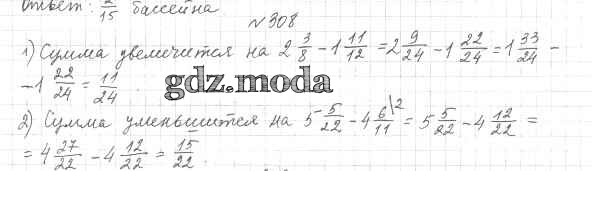 Ответ: 2/15 бассейна
№308
1) Сумма увеличится на 2 3/8 - 1 11/12 = 2 9/24 - 1 22/24 = 1 33/24 -
- 1 22/24 = 11/24.
gdz.moda
2) Сумма уменьшится на 5 5/22 - 4 6/11 \2 = 5 5/22 - 4 12/22 =
= 4 27/22 - 4 12/22 = 15/22.